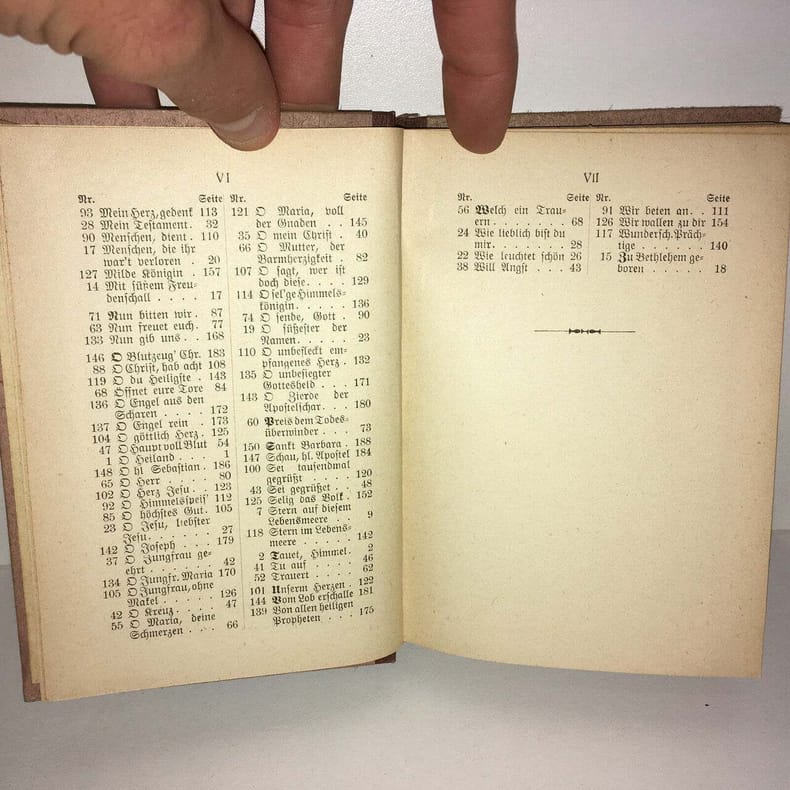 VI
Nr. Seite
93 Mein Herz, gedenk 113
28 Mein Testament. 32
90 Menschen, dient. 110
17 Menschen, die ihr
war't verloren . . 20
127 Milde Königin . 157
14 Mit süßem Freu-
denschall . . . . 17
71 Nun bitten wir. 87
63 Nun freuet euch. 77
133 Nun gib uns. . . 168
146 O Blutzeug' Chr. 183
88 O Christ, hab acht 108
119 O du Heiligste . 143
68 Öffnet eure Tore 84
136 O Engel aus den
Scharen . . . . 172
137 O Engel rein . . 173
104 O göttlich Herz . 125
47 O Haupt voll Blut 54
1 O Heiland . . . 1
148 O hl Sebastian. 186
65 O Herr . . . . 80
102 O Herz Jesu . . 123
92 O Himmelsspeis' 112
85 O höchstes Gut. 105
23 O Jesu, liebster
Jesu. . . . . . 27
142 O Joseph . . . . 179
37 O Jungfrau ge-
ehrt . . . . . 42
134 O Jungfr. Maria 170
105 O Jungfrau, ohne
Makel . . . . . 126
42 O Kreuz. . . . . 47
55 O Maria, deine
Schmerzen . . . 66
Nr. Seite
121 O Maria, voll
der Gnaden . . 145
35 O mein Christ . 40
66 O Mutter, der
Barmherzigkeit . 82
107 O sagt, wer ist
doch diese. . . . 129
114 O sel'ge Himmels-
königin. . . . . 136
74 O sende, Gott . 90
19 O süßester der
Namen. . . . . 23
110 O unbefleckt em-
pfangenes Herz . 132
135 O unbesiegter
Gottesheld . . . 171
143 O Zierde der
Apostelschar. . . 180
60 Preis dem Todes-
überwinder . . . 73
150 Sankt Barbara . 188
147 Schau, hl. Apostel 184
100 Sei tausendmal
gegrüßt . . . . 120
43 Sei gegrüßet . . 48
125 Selig das Volk . 152
7 Stern auf diesem
Lebensmeere . . 9
118 Stern im Lebens-
meere . . . . . 142
2 Tauet, Himmel. 2
41 Tu auf . . . . . 46
52 Trauert . . . . 62
101 Unserm Herzen . 122
144 Vom Lob erschalle 181
139 Von allen heiligen
Propheten . . . 175
VII
Nr. Seite
56 Welch ein Trau-
ern . . . . . . . 68
24 Wie lieblich bist du
mir. . . . . . . 28
22 Wie leuchtet schön 26
38 Will Angst . . . 43
Nr. Seite
91 Wir beten an. . 111
126 Wir wallen zu dir 154
117 Wundersch. Präch-
tige . . . . . . 140
15 Zu Bethlehem ge-
boren . . . . . 18